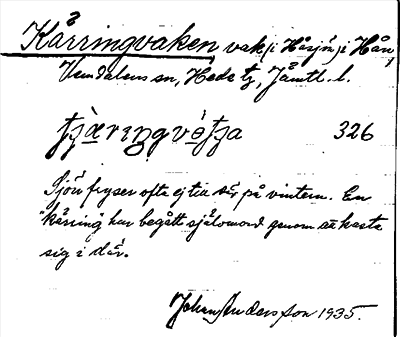 Kårringvaken, vak (i Håsjön) i Hån,
Vemdalens sn, Hede tg, Jämtl. l.
tjæ̀rıŋgvètja 326
Sjön fryser ofta ej till där på vintern. En
"kärring" har begått självmord genom att kasta
sig i där.
Johan Andersson 1935.